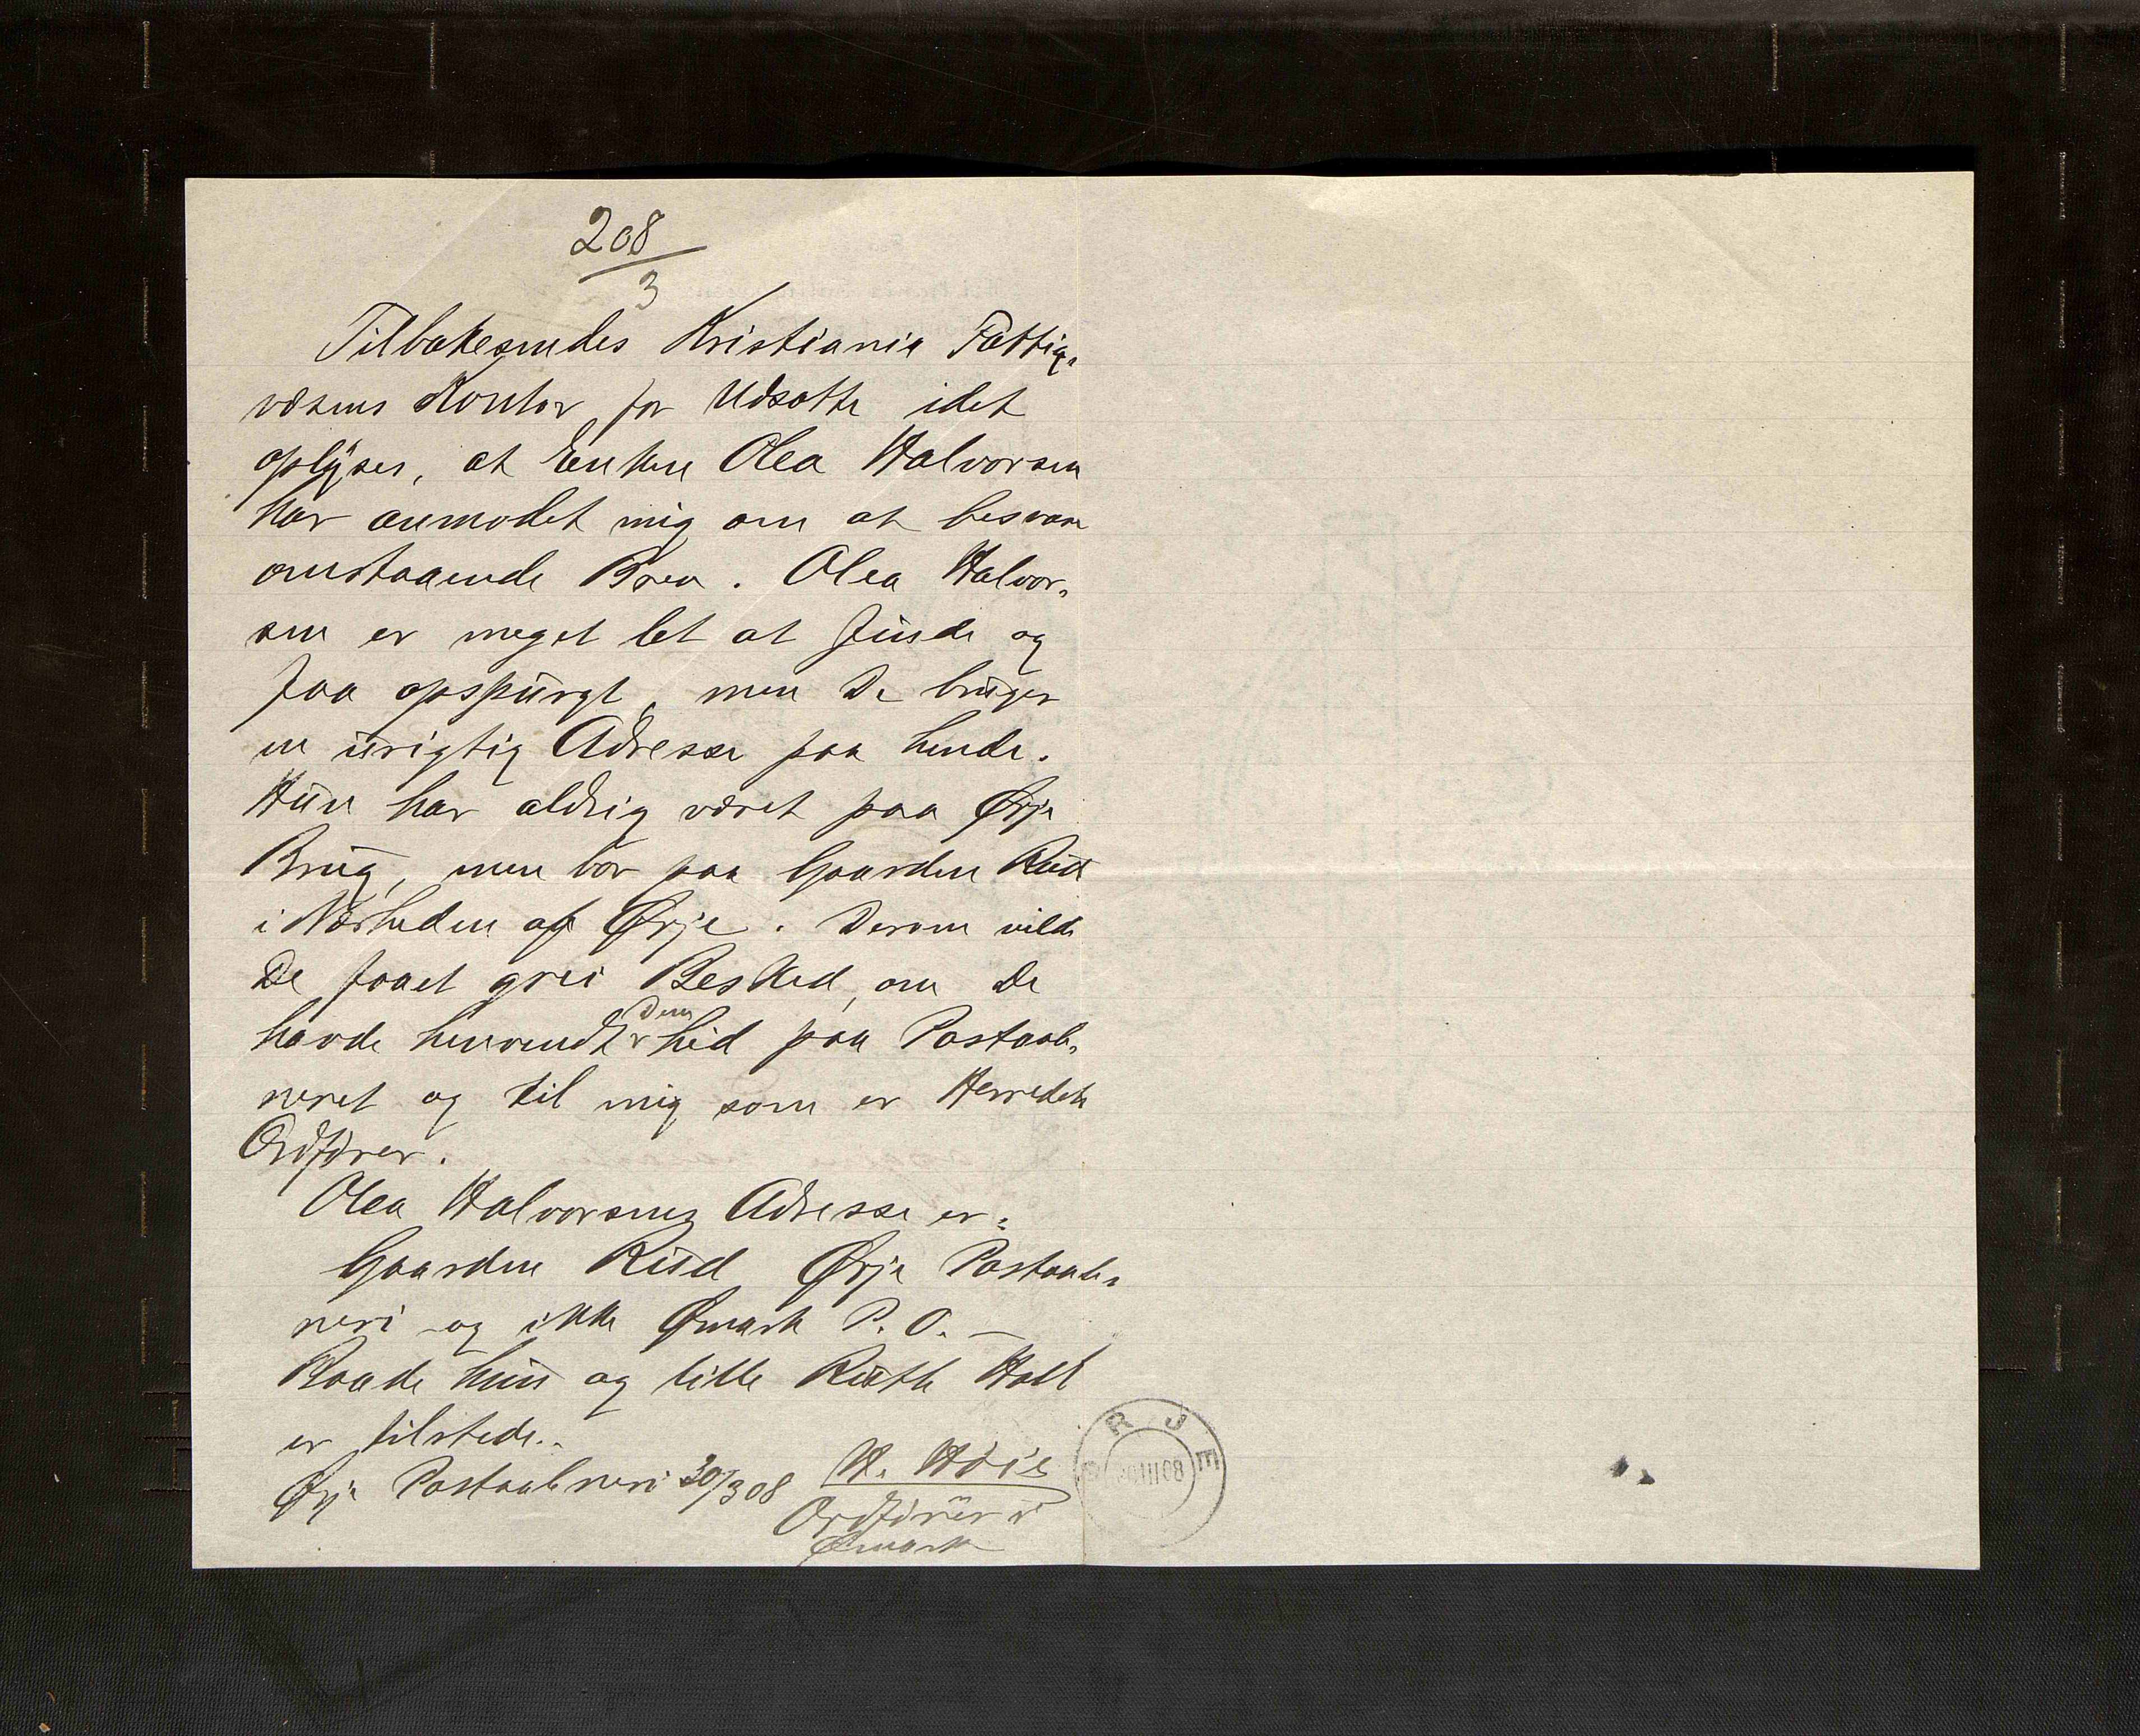 208
3
Tilbakesendes Kristiania Fattig-
væsens Kontor for Udsatte idet
oplyses, at Enken Olea Halvorsen
har anmodet mig om at besvare
omstaaende Brev. Olea Halvor-
sen er meget let at finde og
faa opspurgt, men De bruger
en urigtig Adresse paa hende.
Hun har aldrig været paa Ørje
Brug, men bor paa Gaarden Rud
i Nærheden af Ørje. Derom vilde
De faaet grei Besked, om De
havde henvendt Dem hid paa Postaab-
neret og til mig som er Herredets
Ordfører.
Olea Halvorsens Adresse er:
Gaarden Rud Ørje Postaab-
neri og ikke Ømark P. O. -
Baade hun og lille Ruth Holt
er tilstede.
Ørje Postaabneri 30/3 08 H. Høie
Ordfører i
Ømark
ØRJE
30 III 08